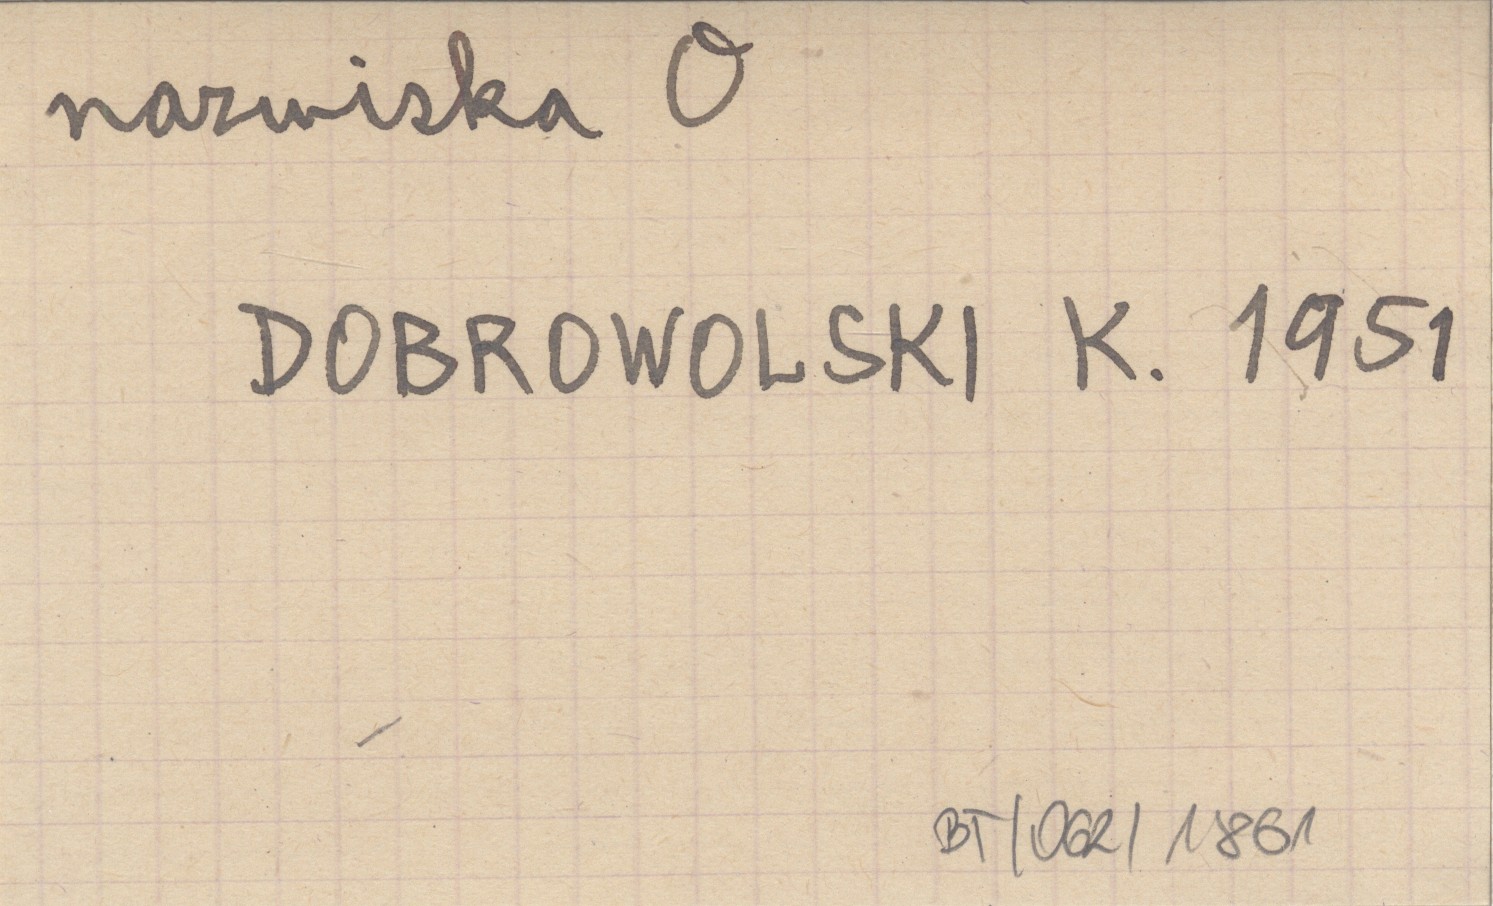 nazwiska O
DOBROWOLSKI K. 1951
BT/062/1861